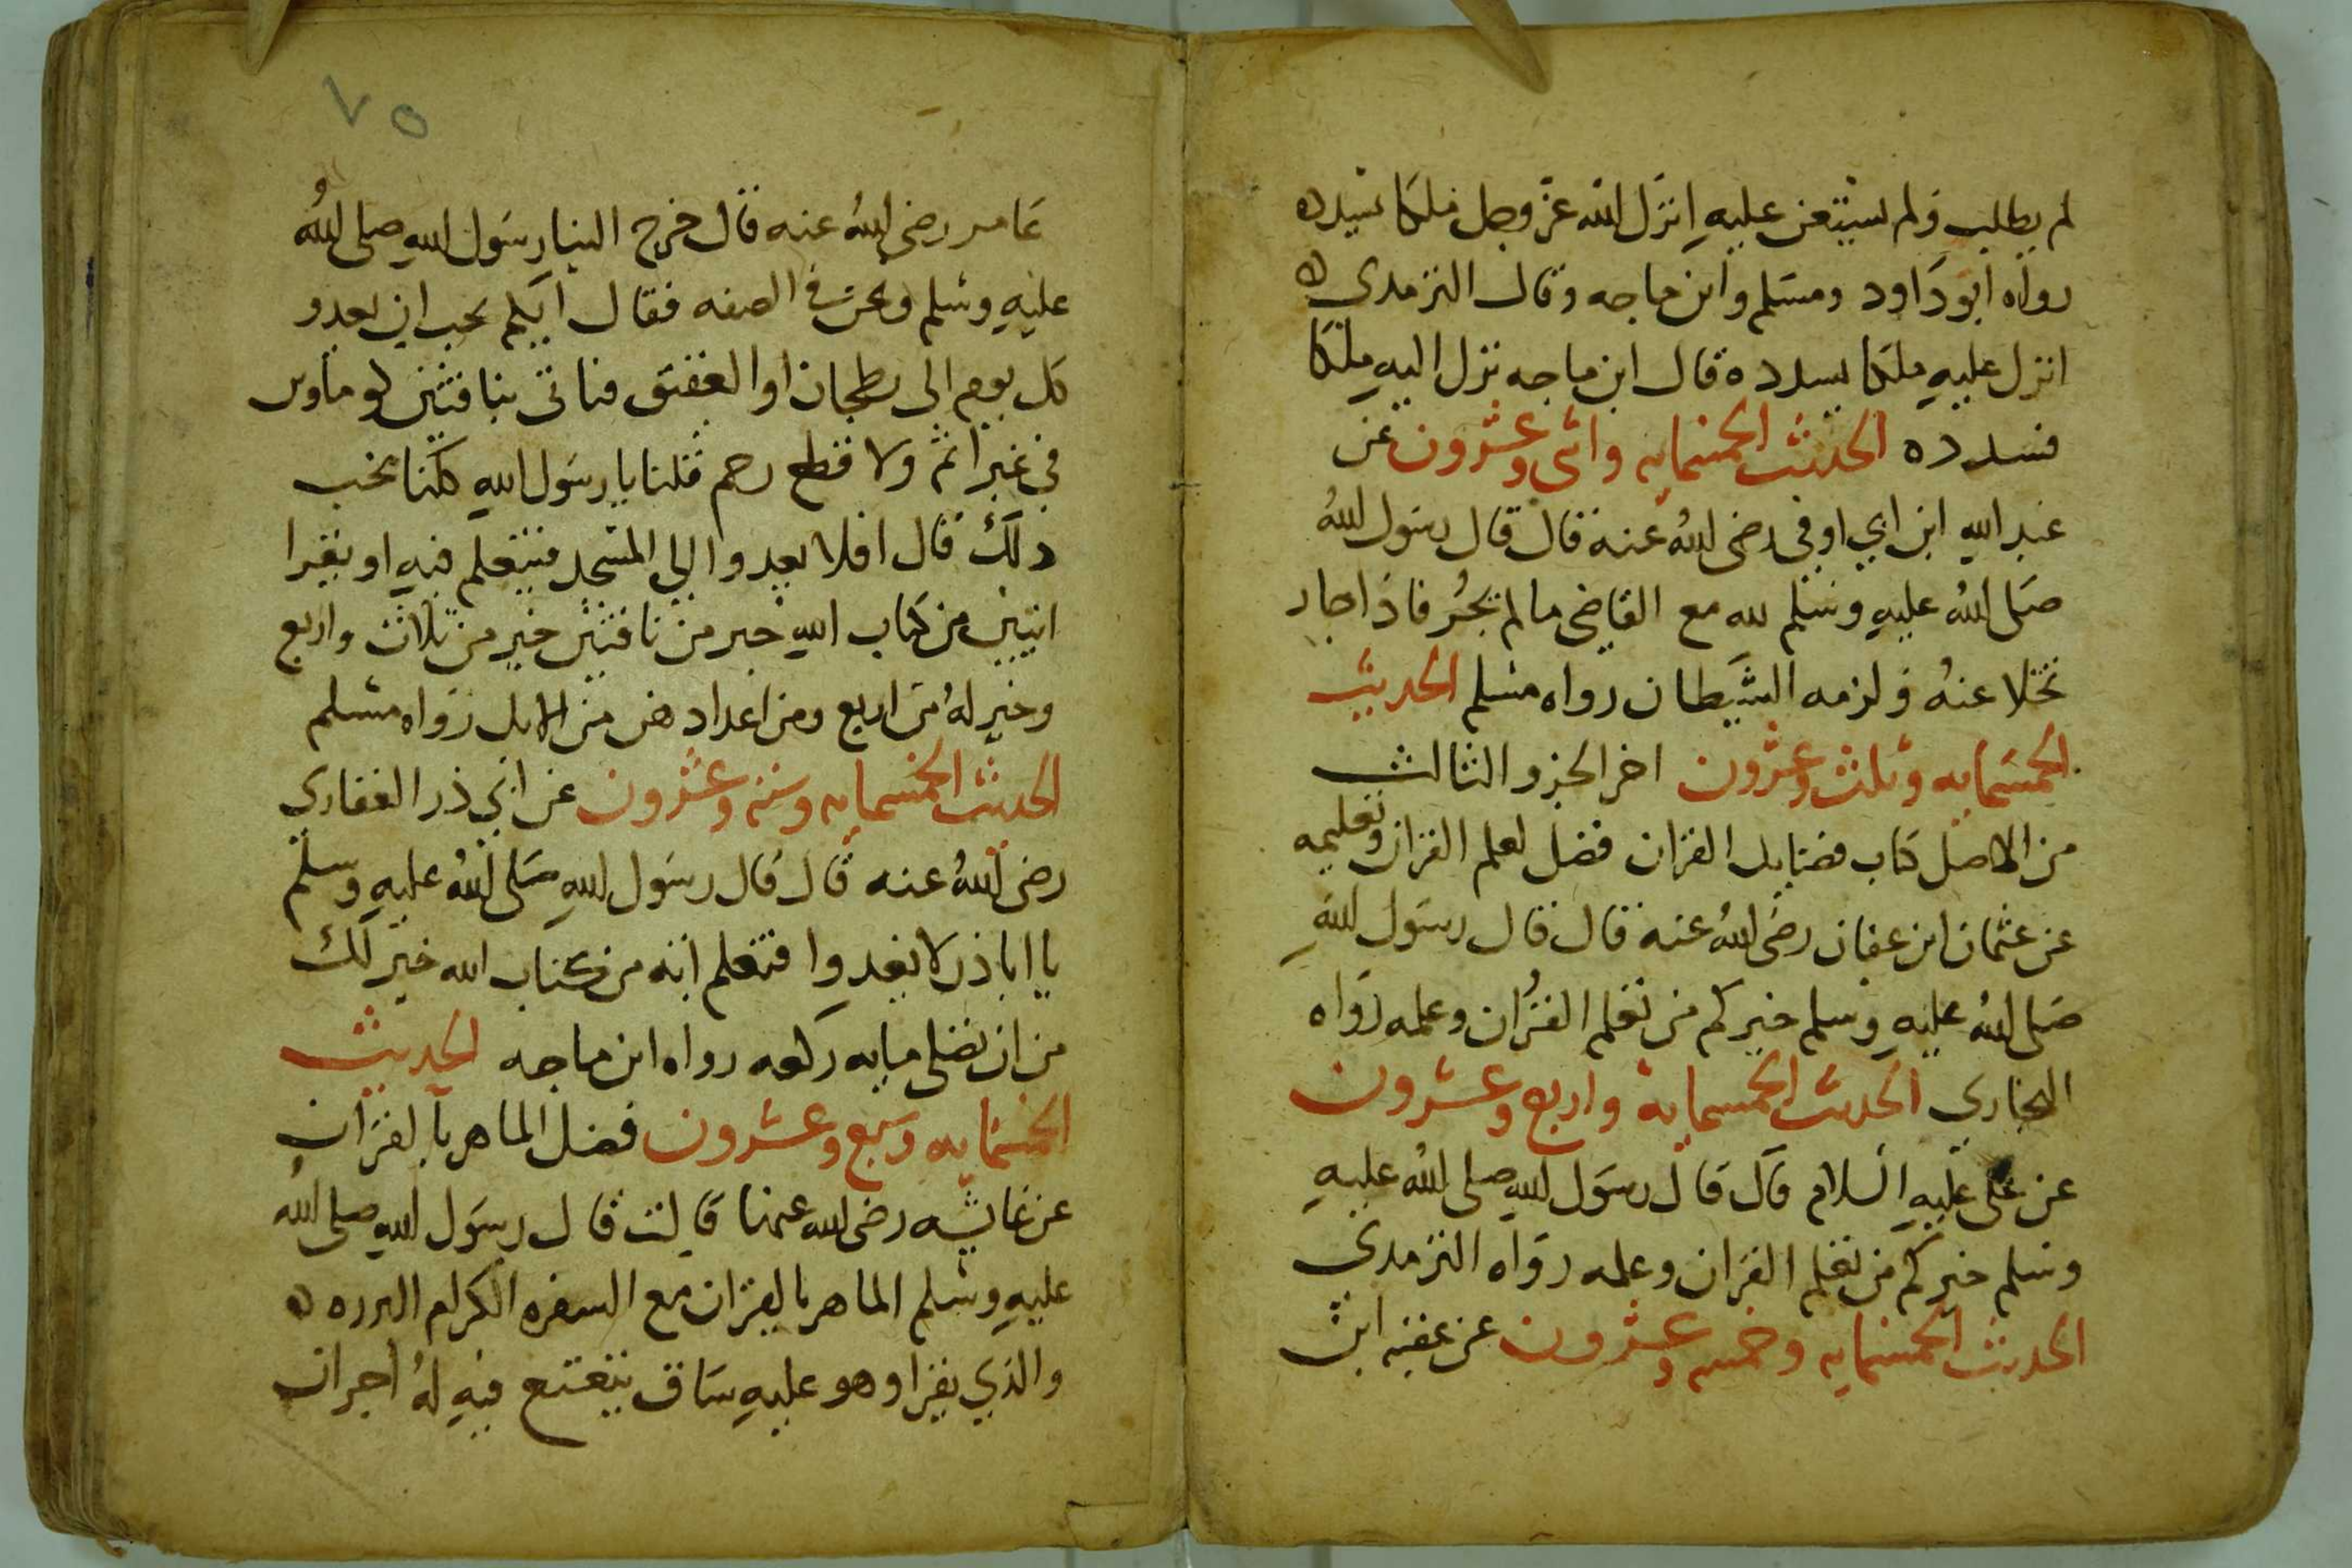 لم يطلب ولم يستعن عليه انزل الله عز وجل ملكا يسدده
رواه ابو داود ومسلم وابن ماجه وقال الترمدي
انزل عليه ملكا يسدده قال ابن ماجه نزل اليه ملكا
فسدده الحديث الخمسمايه واثنى وعشرون عن
عبد الله ابن ابي اوفى رضى الله عنه قال قال رسول الله
صلى الله عليه وسلم لله مع القاضى ما لم يجر فاذا جار
تخلا عنه ولزمه الشيطان رواه مسلم الحديث
الخمسمايه وثلث وعشرون اخر الجزو الثالث
من الاصل كتاب فضايل القران فضل تعلم القران وتعليمه
عن عثمان ابن عفان رضى الله عنه قال قال رسول الله
صلى الله عليه وسلم خيركم من تعلم القران وعلمه رواه
البخاري الحديث الخمسمايه واربع وعشرون
عن على عليه السلام قال قال رسول الله صلى الله عليه
وسلم خيركم من تعلم القران وعلمه رواه الترمدي
الحديث الخمسمايه وخمسه وعشرون عن عقبه ابن
٧٥
عامر رضى الله عنه قال خرج الينا رسول الله صلى الله
عليه وسلم ونحن في الصفه فقال ايكم يحب ان يعدو
كل يوم الى بطحان او العقيق فياتى بناقتين كوماوين
في غير اثم ولا قطع رحم فقلنا يا رسول الله كلنا يحب
دلك قال افلا يعدوا الى المسجد فيتعلم فيه او يقرا
ايتين من كتاب الله خير من ناقتين خير من ثلاث واربع
وخير له من اربع ومن اعداد هن من الابل رواه مسلم
الحديث الخمسمايه وسته وعشرون عن ابي ذر الغفاري
رضى الله عنه قال قال رسول الله صلى الله عليه وسلم
يا ابا ذر لا تغدوا فتعلم ايه من كتاب الله خير لك
من ان تصلى مايه ركعه رواه ابن ماجه الحديث
الخمسمايه وسبع وعشرون فضل الماهر بالقران
عن عايشه رضى الله عنها قالت قال رسول الله صلى الله
عليه وسلم الماهر بالقران مع السفره الكرام البرره
والذي يقرا وهو عليه شاق يتتعتع فيه له اجران